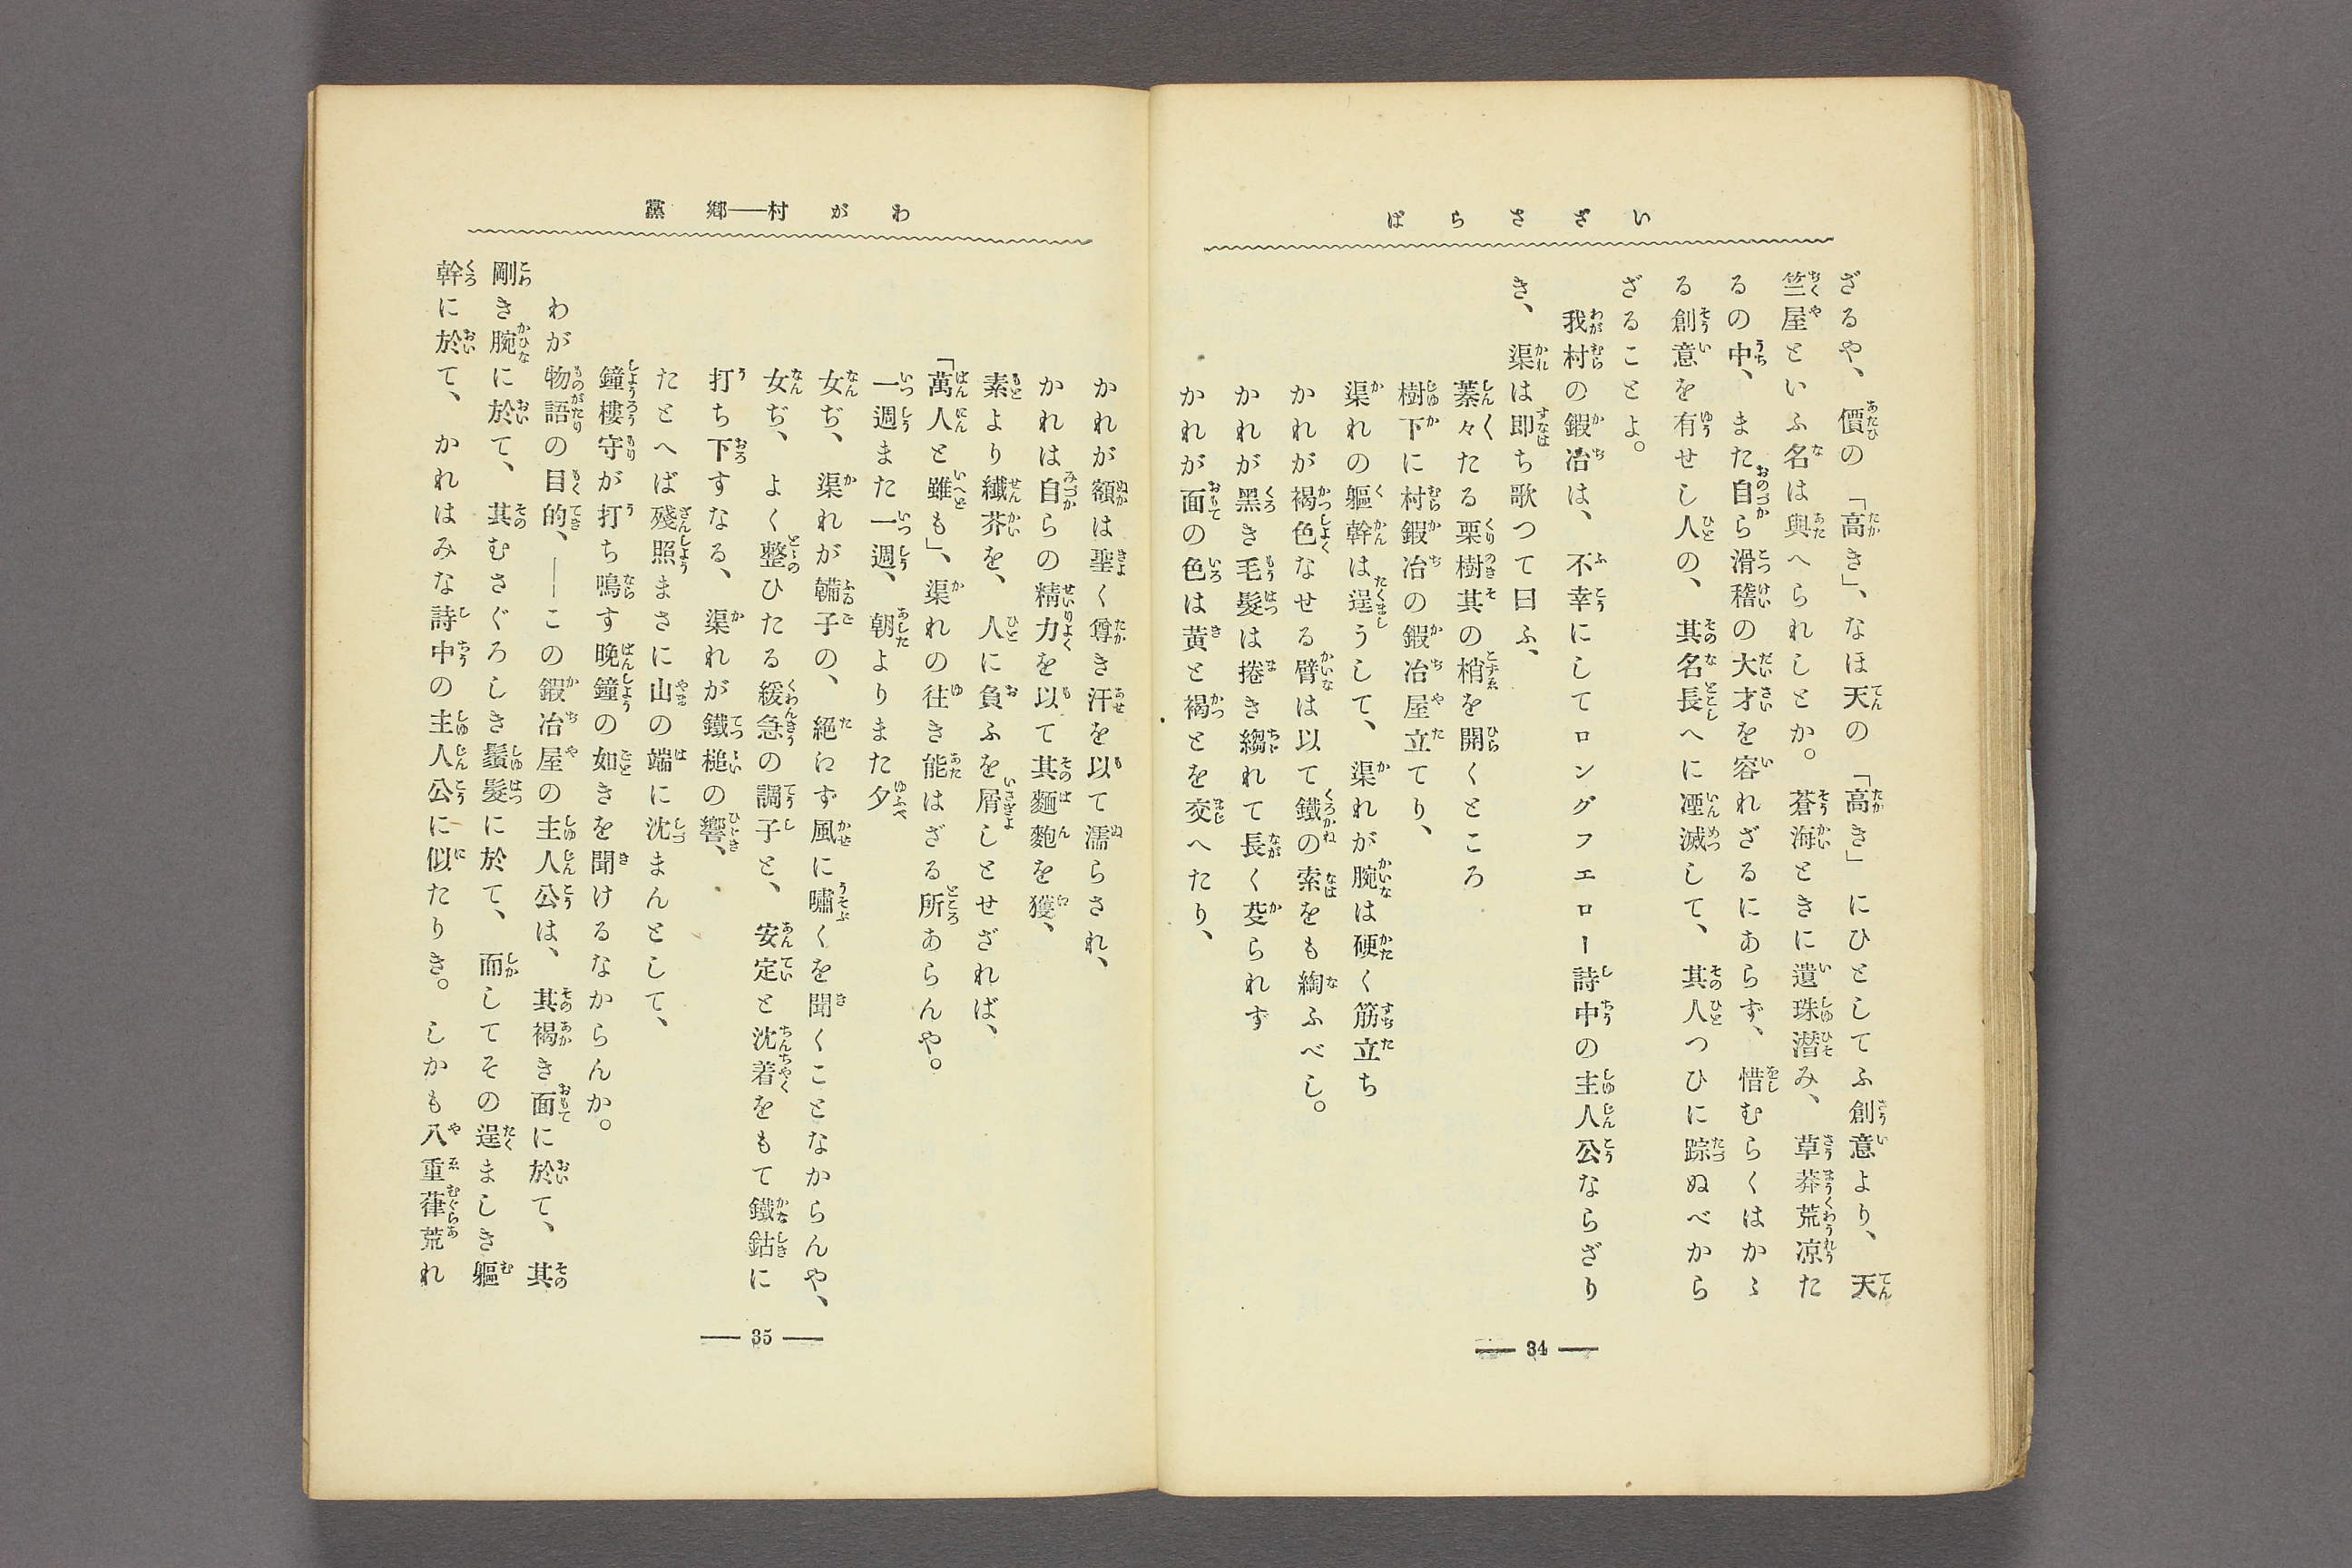 いざさらば
ざるや、價の「高き」、なほ天の「高き」にひとしてふ創意より、天
竺屋といふ名は與へられしとか。蒼海ときに遺珠潜み、草莽荒凉た
るの中、また自ら滑稽の大才を容れざるにあらず、惜むらくはかゝ
る創意を有せし人の、其名長へに湮滅して、其人つひに踪ぬべから
ざることよ。
我村の鍜冶は、不幸にしてロングフエロー詩中の主人公ならざり
き、渠は即ち歌つて曰ふ、
蓁々たる栗樹其の梢を開くところ
樹下に村鍜冶の鍜冶屋立てり、
渠れの軀幹は逞うして、渠れが腕は硬く筋立ち
かれが褐色なせる臂は以て鐵の索をも綯ふべし。
かれが黑き毛髮は捲き縐れて長く芟られず
かれが面の色は黄と褐とを交へたり、
34
わが村――鄕黨
かれが額は聖く尊き汗を以て濡らされ、
かれは自らの精力を以て其麵麭を獲、
素より纎芥を、人に負ふを屑しとせざれば、
「萬人と雖も」、渠れの往き能はざる所あらんや。
一週また一週、朝よりまた夕
女ぢ、渠れが鞴子の、絕えず風に嘯くを聞くことなからんや、
女ぢ、よく整ひたる緩急の調子と、安定と沈着をもて鐵鈷に
打ち下すなる、渠れが鐵槌の響、
たとへば殘照まさに山の端に沈まんとして、
鐘樓守が打ち鳴す晩鐘の如きを聞けるなからんか。
わが物語の目的、――この鍜冶屋の主人公は、其褐き面に於て、其
剛き腕に於て、其むさぐろしき鬚髮に於て、而してその逞ましき軀
幹に於て、かれはみな詩中の主人公に似たりき。しかも八重葎荒れ
35